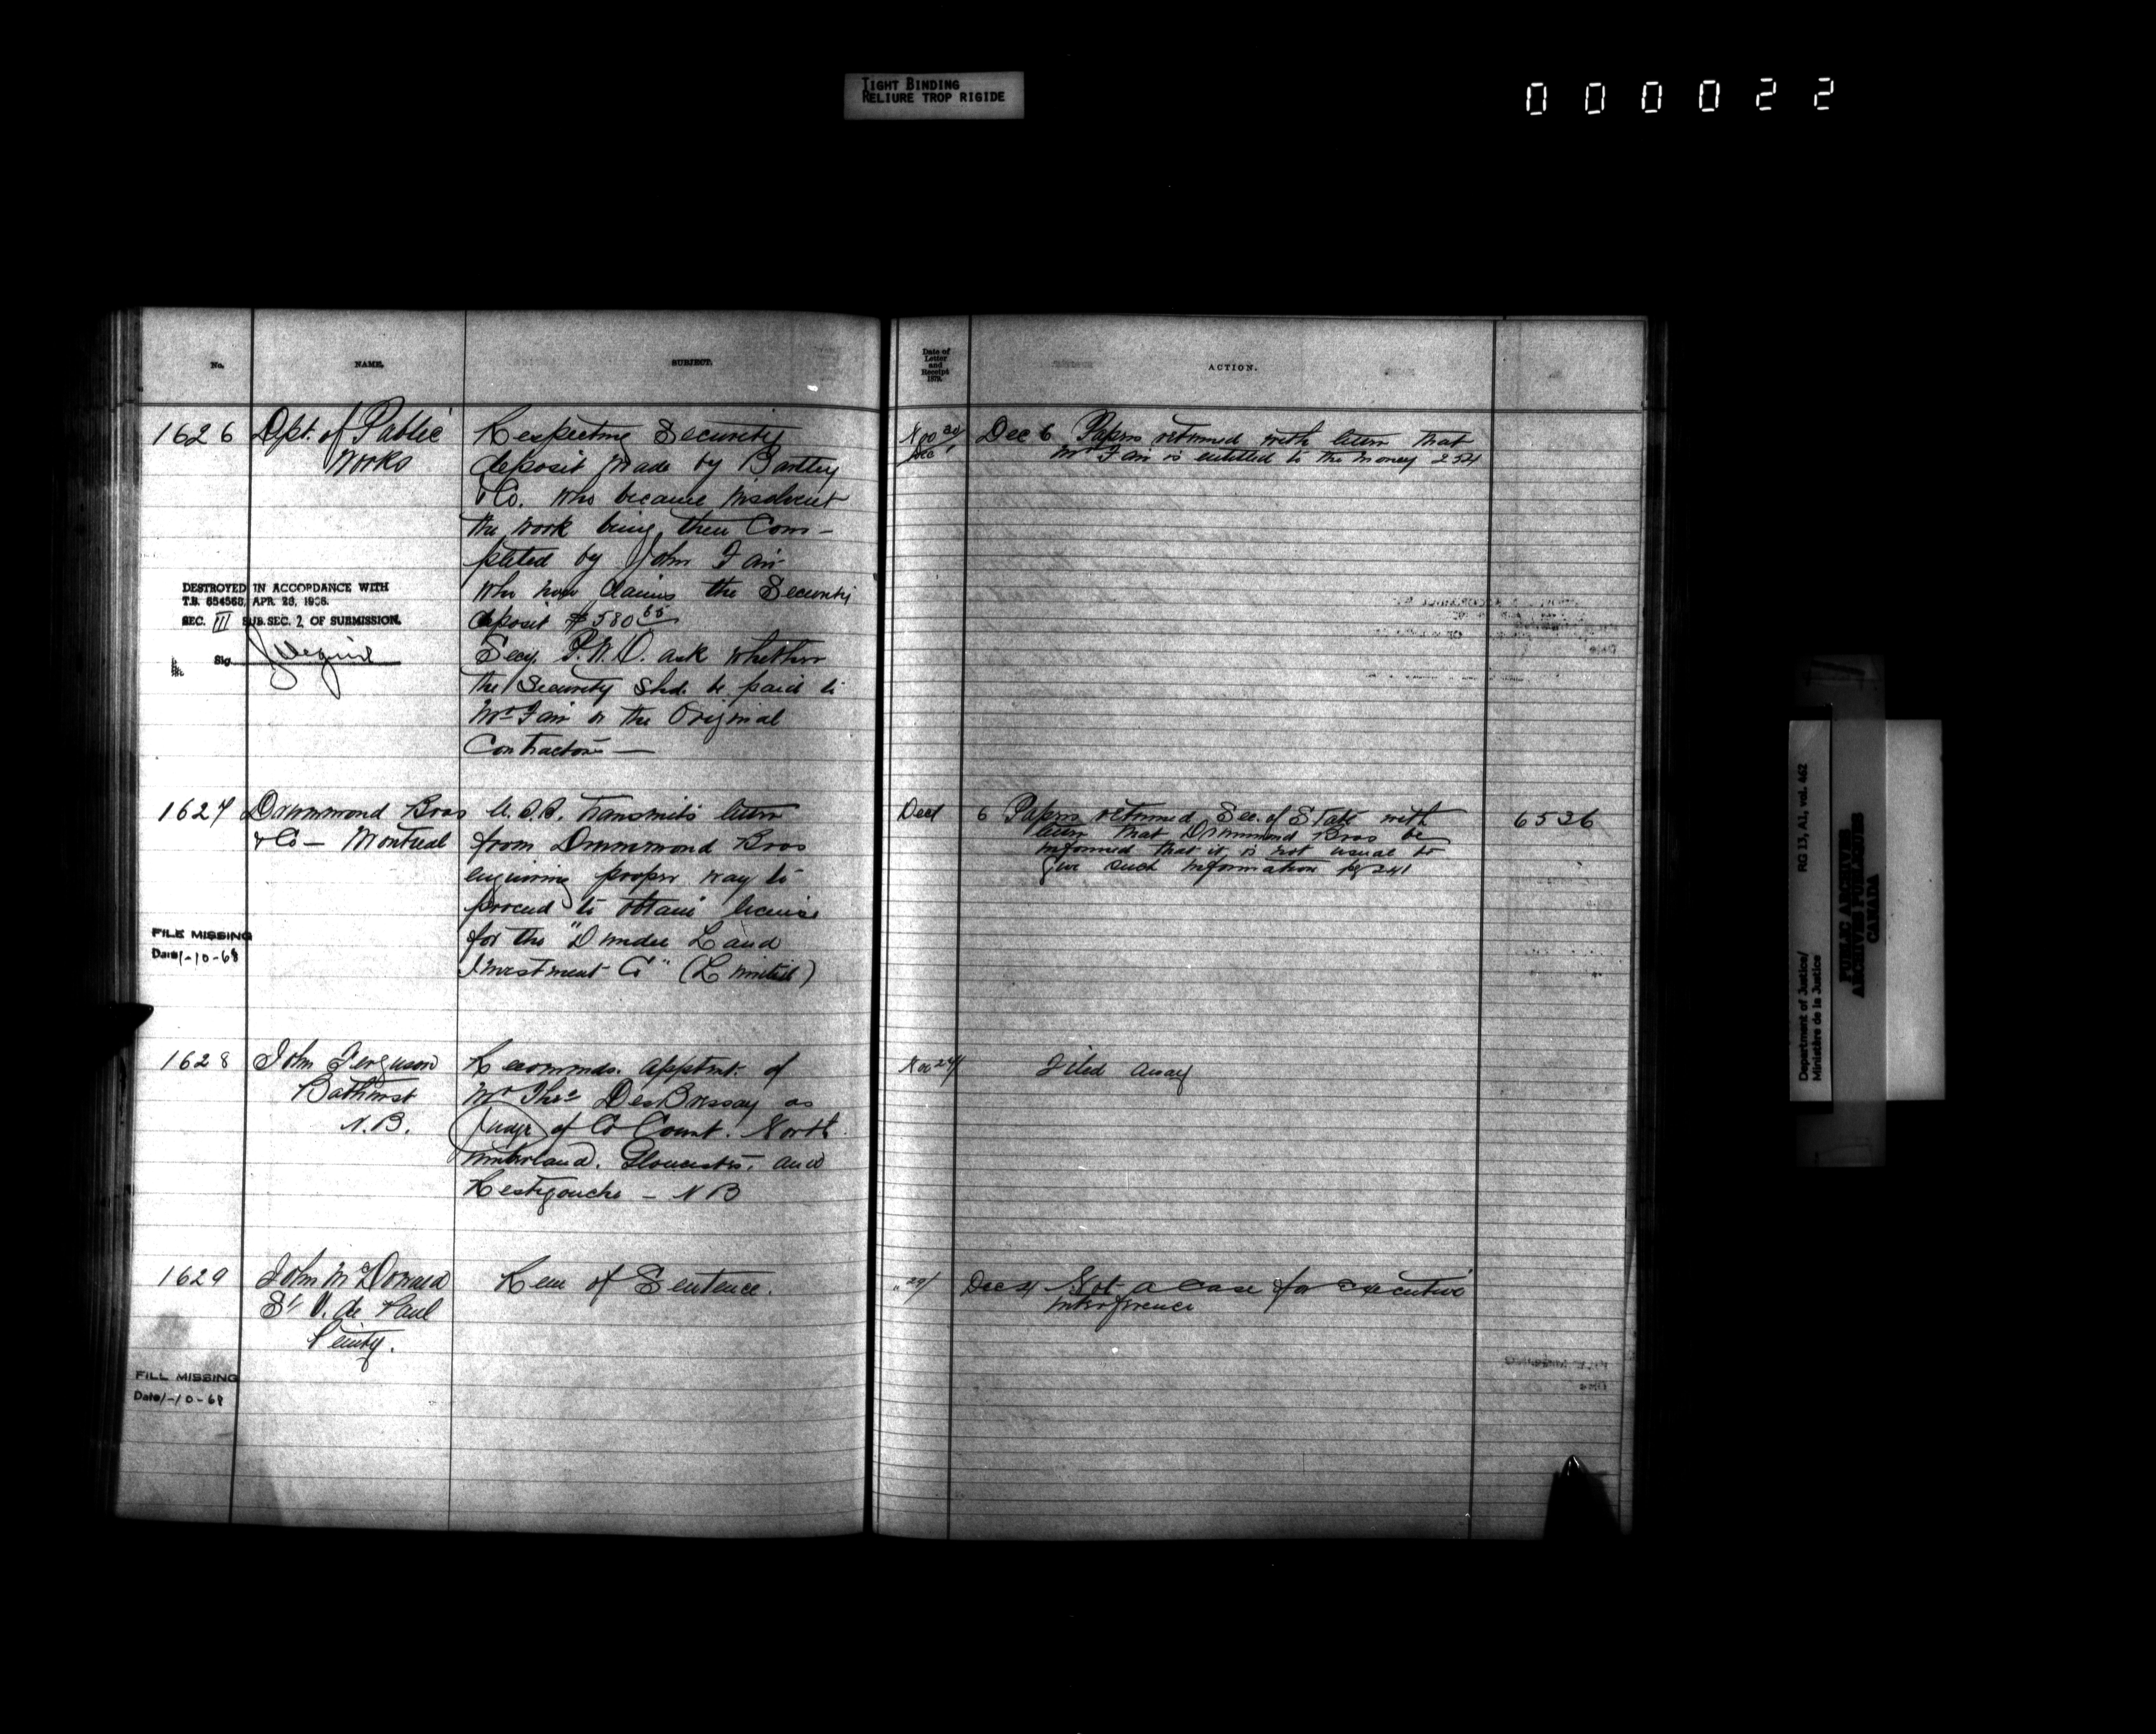 TIGHT BINDING
RELIURE TROP RIGIDE
000022
No.
NAME.
SUBJECT.
1626
Dept. of Public
Works
Respecting Security
deposit made by Bartley
& Co. who became insolvent
the work being then Com-
pleted by John Fair
who now claims the Security
deposit $580 65
Secy. P.W.D. ask whether
the Security shd. be paid to
Mr Fair or the Original
Contractors —
DESTROYED IN ACCORDANCE WITH
T.B. 654568, APR. 28, 1966.
SEC. III SUB. SEC. 2 OF SUBMISSION.
Sig
1627
Drummond Bros
& Co — Montreal
U.S.S. transmits letter
from Drummond Bros
enquiring proper way to
proceed to obtain license
for the "Dundee Land
Investment Co" (Limited)
FILE MISSING
Date 1-10-68
1628
John Ferguson
Bathurst
N.B.
Recommds. apptmt. of
Mr Thos DesBrisay as
Judge of Co Court. North
umberland. Gloucester. and
Restigouche — NB
1629
John McDonald
St V. de Paul
Penity.
Rem of Sentence.
FILE MISSING
Date 1-10-68
Date of
Letter
and
Receipt
1879.
ACTION.
Nov 30/
Dec 1
Dec 6 Papers returned with letter that
Mr Fair is entitled to the money 254
Dec 1
6 Papers returned Sec. of State with
letter that Drummond Bros be
informed that it is not usual to
give such information pg 241
6526
Nov 24/
Filed away
" 29/
Dec 4 Not a case for executive
interference
Department of Justice/
Ministère de la Justice
RG 13, A1, vol. 462
PUBLIC ARCHIVES
ARCHIVES PUBLIQUES
CANADA